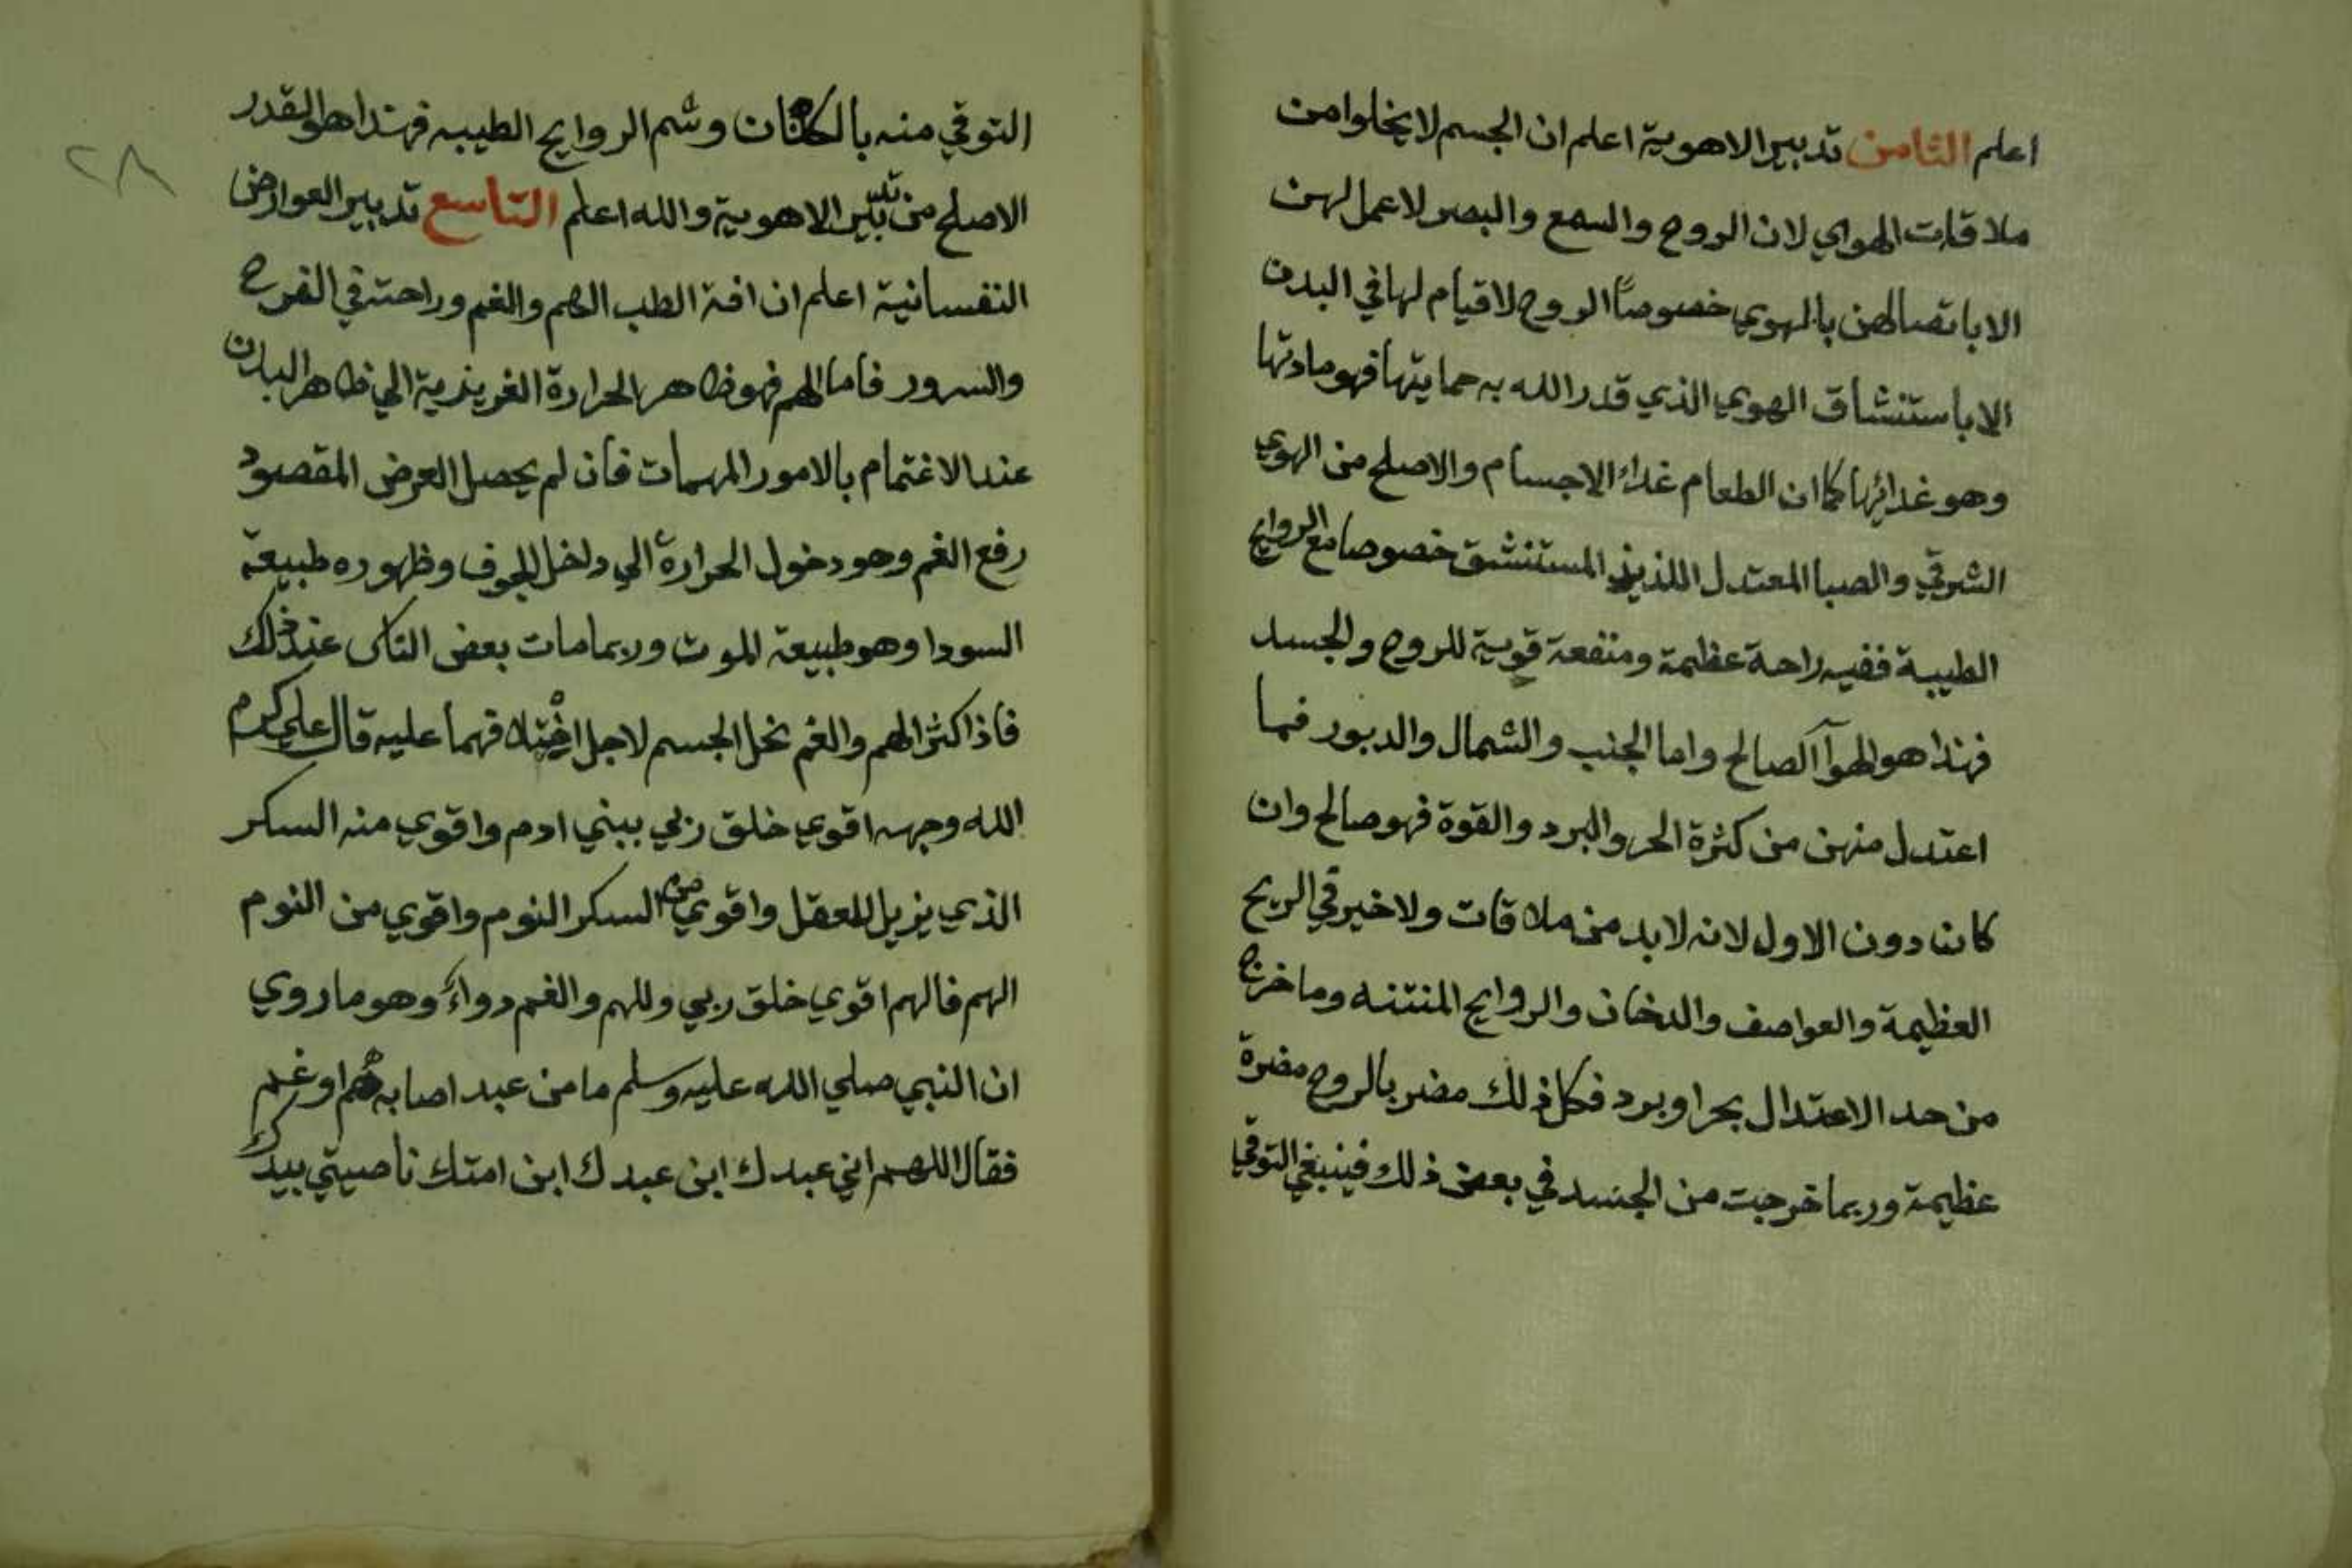 اعلم الثامن تدبير الاهوية اعلم ان الجسم لا يخلوا من
ملاقات الهواي لان الروح والسمع والبصر لا عمل لهن
الا باتصالهن بالهوي خصوصًا الروح لا قيام لها في البدن
الا باستنشاق الهوي الذي قدر الله به حمايتها فهو مادتها
وهو غدائها كما ان الطعام غداء الاجسام والاصلح من الهوي
الشرقي والصبا المعتدل اللذيذ المستنشق خصوصا مع الروايح
الطيبة ففيه راحة عظيمة ومنفعة قوية للروح والجسد
فهذا هو الهوآ الصالح واما الجنب والشمال والدبور فما
اعتدل منهن من كثرة الحر والبرد والقوة فهو صالح وان
كانا دون الاول لانه لا بد من ملاقات ولا خير في الريح
العظيمة والعواصف والدخان والروايح المنتنه وما خرج
من حد الاعتدال بحر او برد فكل ذلك مضر بالروح مضرة
عظيمة وربما خرجت من الجسد في بعض ذلك فينبغي التوقي
٢٨
التوقي منه بالكتان وشم الروايح الطيبه فهذا هو القدر
الاصلح من تدبير الاهوية والله اعلم التاسع تدبير العوارض
النفسانية اعلم ان افة الطب الهم والغم وراحته في الفرح
والسرور فاما الهم فهو ظاهر الحرارة الغريزية الي ظاهر البدن
عند الاغتمام بالامور المهمات فان لم يحصل العرض المقصود
رفع الغم وهو دخول الحرارة الي داخل الجوف وظهوره طبيعة
السودا وهو طبيعة الموت وربما مات بعض الناس عند ذلك
فاذا كثر الهم والغم نحل الجسم لاجل فهما عليه قال علي كرم
الله وجهه اقوي خلق ربي ببني ادم واقوي منه السكر
الذي يزيل للعقل واقوي من السكر النوم واقوي من النوم
الهم فالهم اقوي خلق ربي وللهم والغم دواءً وهو ما روي
ان النبي صلي الله عليه وسلم ما من عبد اصابه هم او غم
فقال اللهم اني عبدك ابن عبدك ابن امتك ناصيتي بيدك